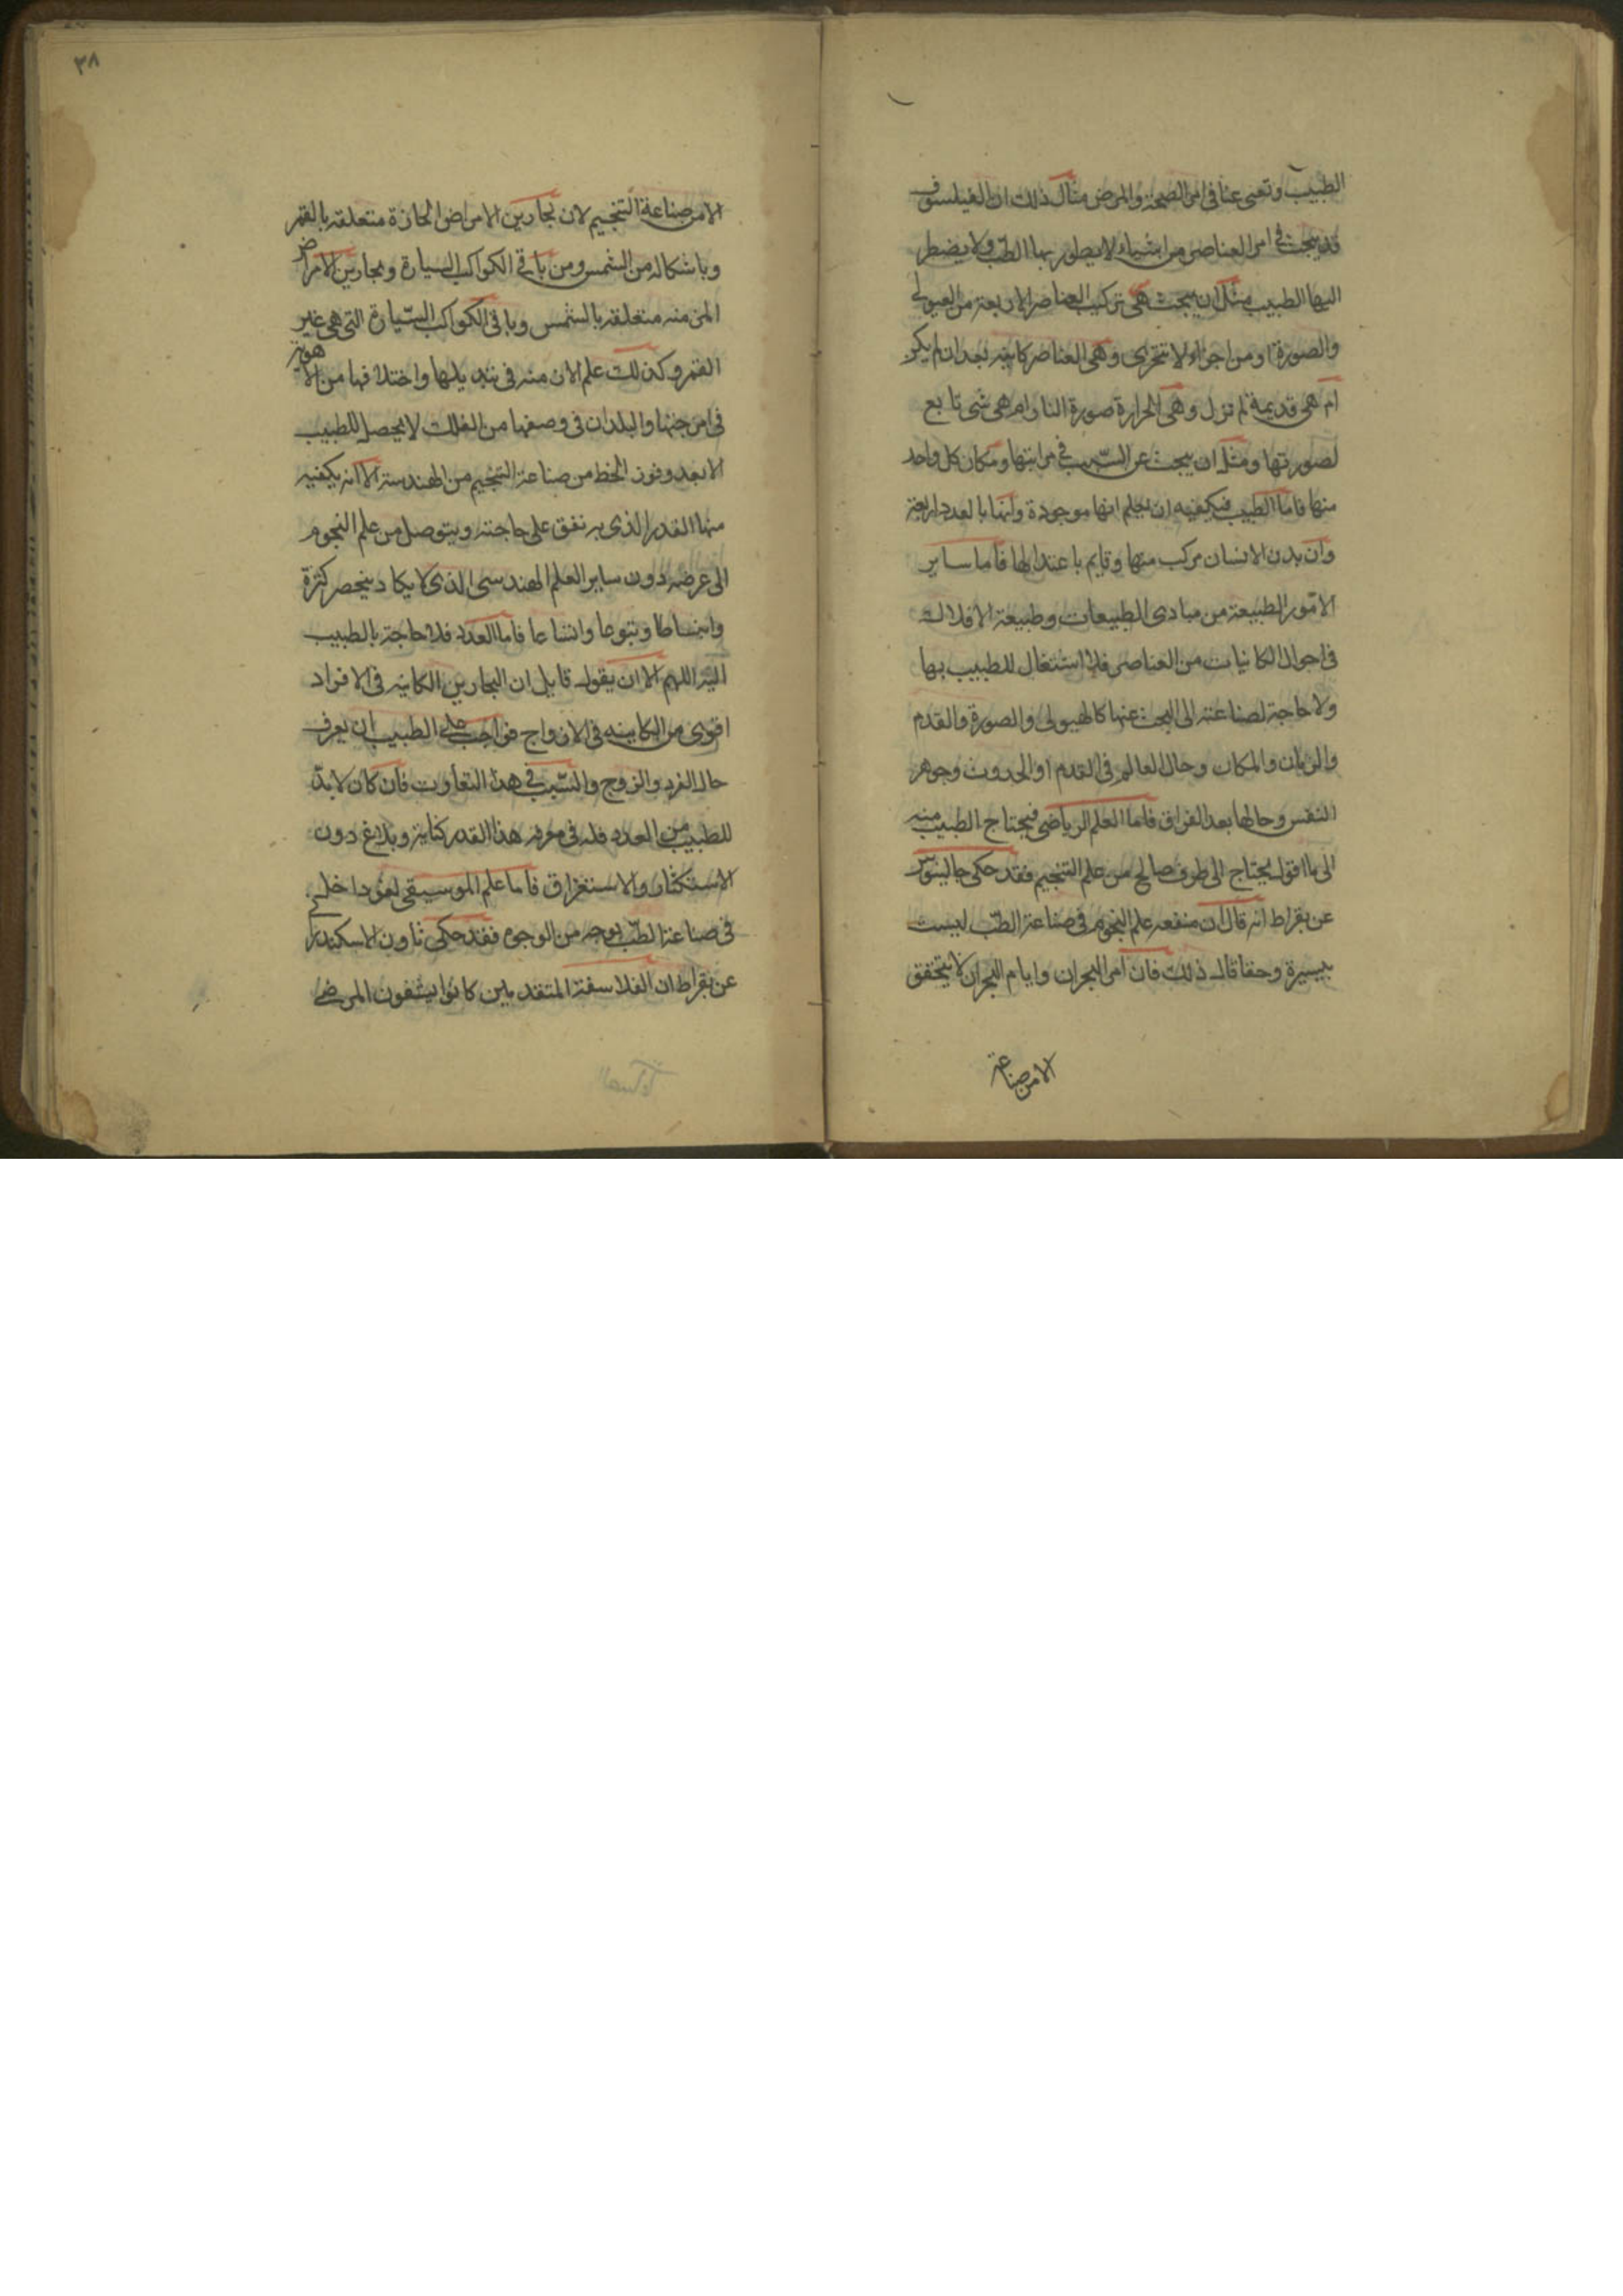 الطبيب وتعنى عنا فى امر الصحة والمرض مثال ذلك ان الفيلسوف
قد يبحث فى امر العناصر من اشياء لا يطور بها الطب ولا يضطر
اليها الطبيب مثل ان يبحث هل تركيب العناصر الاربعة من الهيولى
والصورة او من اجزاء لا تتجزى وهى العناصر كاينه بعد ان لم يكن
ام هى قديمة لم تزل وهى الحرارة صورة النار ام هى شى تابع
لصورتها ومثل ان يبحث عن السبب فى مراتبها ومكان كل واحد
منها فاما الطبيب فيكفيه ان يعلم انها موجودة وانها بالعدد اربعة
وان بدن الانسان مركب منها وقايم باعتدالها فاما ساير
الامور الطبيعة من مبادى الطبيعات وطبيعة الافلاك
فى احوال الكاينات من العناصر فلا اشتغال للطبيب بها
ولا حاجة لصناعته الى البحث عنها كالهيولى والصورة والقدم
والزمان والمكان وحال العالم فى القدم او الحدوث وجوهر
النفس وحالها بعد الفراق فاما العلم الرياضى فيحتاج الطبيب منه
الى ما اقول يحتاج الى طرف صالح من علم التنجيم فقد حكى جالينوس
عن بقراط انه قال ان منفعه علم النجوم فى صناعة الطب ليست
بيسيرة وحقا قال ذلك فان امر البحران وايام البحران لا يتحقق
الا من صناعة
٣٨
الا من صناعة التنجيم لان بحارين الامراض الحادة متعلقه بالقمر
وباشكاله من الشمس ومن باقى الكواكب السيارة وبحارين الامراض
المزمنه متعلقه بالشمس وباقى الكواكب السيارة التى هى غير
القمر وكذلك علم الازمنه فى تبديلها واختلافها من الاهوية
فى امزجتها والبلدان فى وصفها من الفلك لا يحصل للطبيب
الا بعد وفور الحظ من صناعة التنجيم من الهندسة الا انه يكفيه
منها القدر الذى به نفق على حاجته ويتوصل من علم النجوم
الى غرضه دون ساير العلم الهندسى الذى لا يكاد ينحصر كثرة
وانبساطا وتنوعا واتساعا فاما العدد فلا حاجة بالطبيب
اليه اللهم الا ان يقول قايل ان البحارين الكاينه فى الافراد
اقوى من الكاينه فى الازواج فواجب على الطبيب ان يعرف
حال الفرد والزوج والسبب فى هذا التفاوت فان كان لا بد
للطبيب من العدد فله فى معرفه هذا القدر كفاية وبلاغ دون
الاستكثار والاستغراق فاما علم الموسيقى فهو داخل
فى صناعة الطب بوجه من الوجوه فقد حكى ثاون الاسكندرانى
عن بقراط ان الفلاسفة المتقدمين كانوا يشفون المرضى